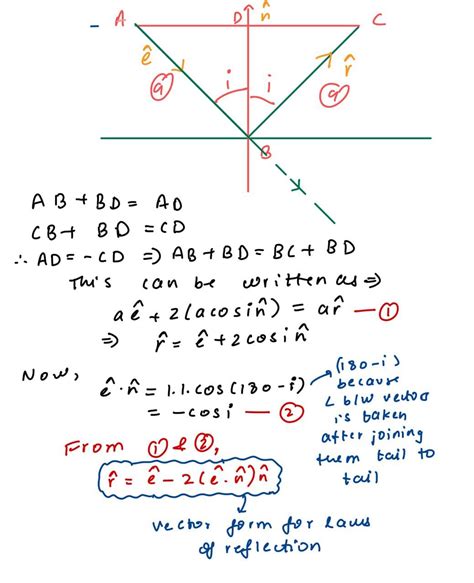 A D n̂ C
ê i i r̂
a a
B
AB + BD = AD
CB + BD = CD
∴ AD = -CD ⇒ AB + BD = BC + BD
This can be written as ⇒
a ê + 2(a cos i n̂) = a r̂ — ①
⇒ r̂ = ê + 2 cos i n̂
Now,
ê . n̂ = 1.1. cos (180 - i)
= - cos i — ②
(180 - i)
because
∠ b/w vector
is taken
after joining
them tail to
tail
From ① & ②,
r̂ = ê - 2(ê . n̂) n̂
vector form for laws
of reflection